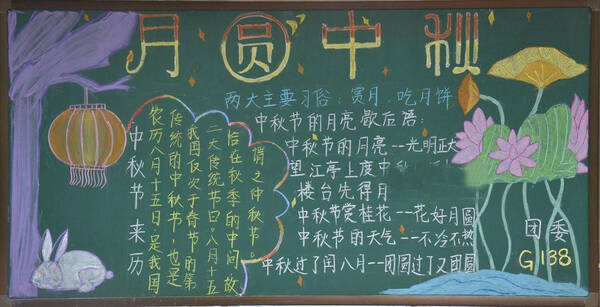 月圆中秋
两大主要习俗：赏月、吃月饼
中秋节来历
农历八月十五日，是我国
传统的中秋节，也是
我国仅次于春节的第
二大传统节日。八月十五
恰在秋季的中间，故
谓之中秋节。
中秋节的月亮 歇后语：
中秋节的月亮--光明正大
望江亭上度中秋
楼台先得月
中秋节赏桂花--花好月圆
中秋节的天气--不冷不热
中秋过了闰八月--团圆过了又团圆
团委
G138